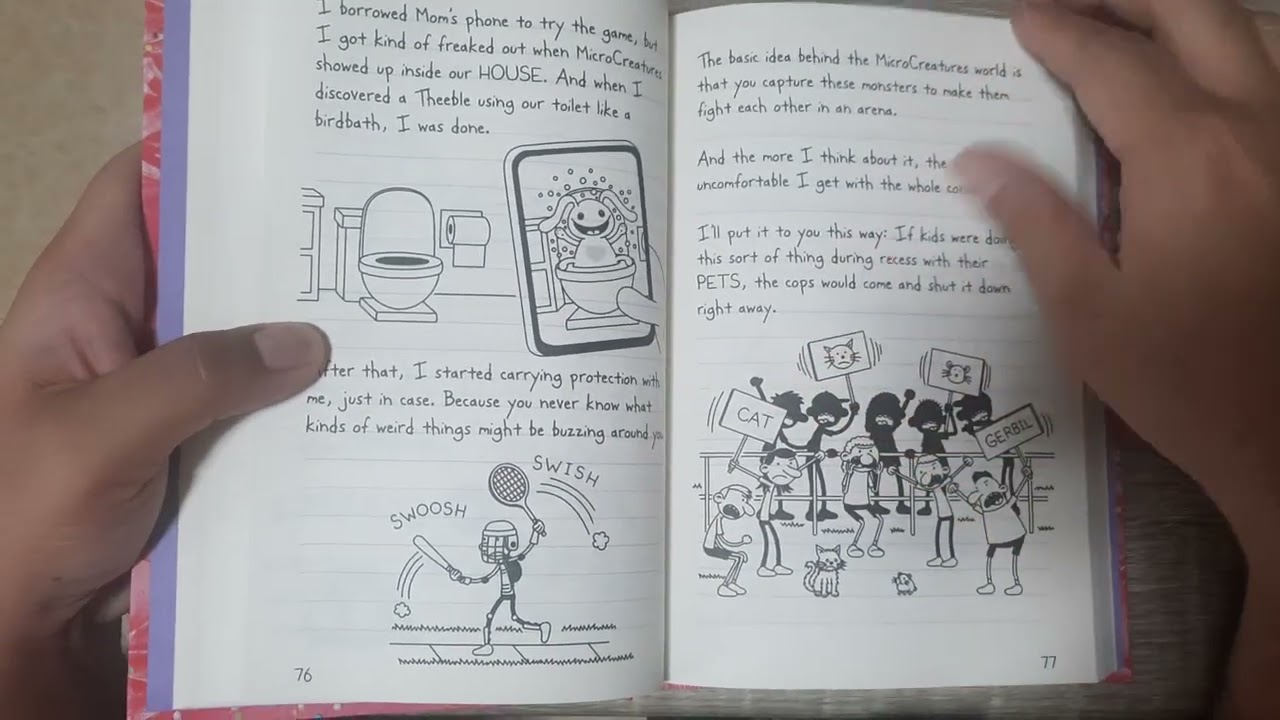 I borrowed Mom's phone to try the game, but
I got kind of freaked out when MicroCreatures
showed up inside our HOUSE. And when I
discovered a Theeble using our toilet like a
birdbath, I was done.
After that, I started carrying protection with
me, just in case. Because you never know what
kinds of weird things might be buzzing around you
SWISH
SWOOSH
76
The basic idea behind the MicroCreatures world is
that you capture these monsters to make them
fight each other in an arena.
And the more I think about it, the
uncomfortable I get with the whole
I'll put it to you this way: If kids were doing
this sort of thing during recess with their
PETS, the cops would come and shut it down
right away.
CAT
GERBIL
77